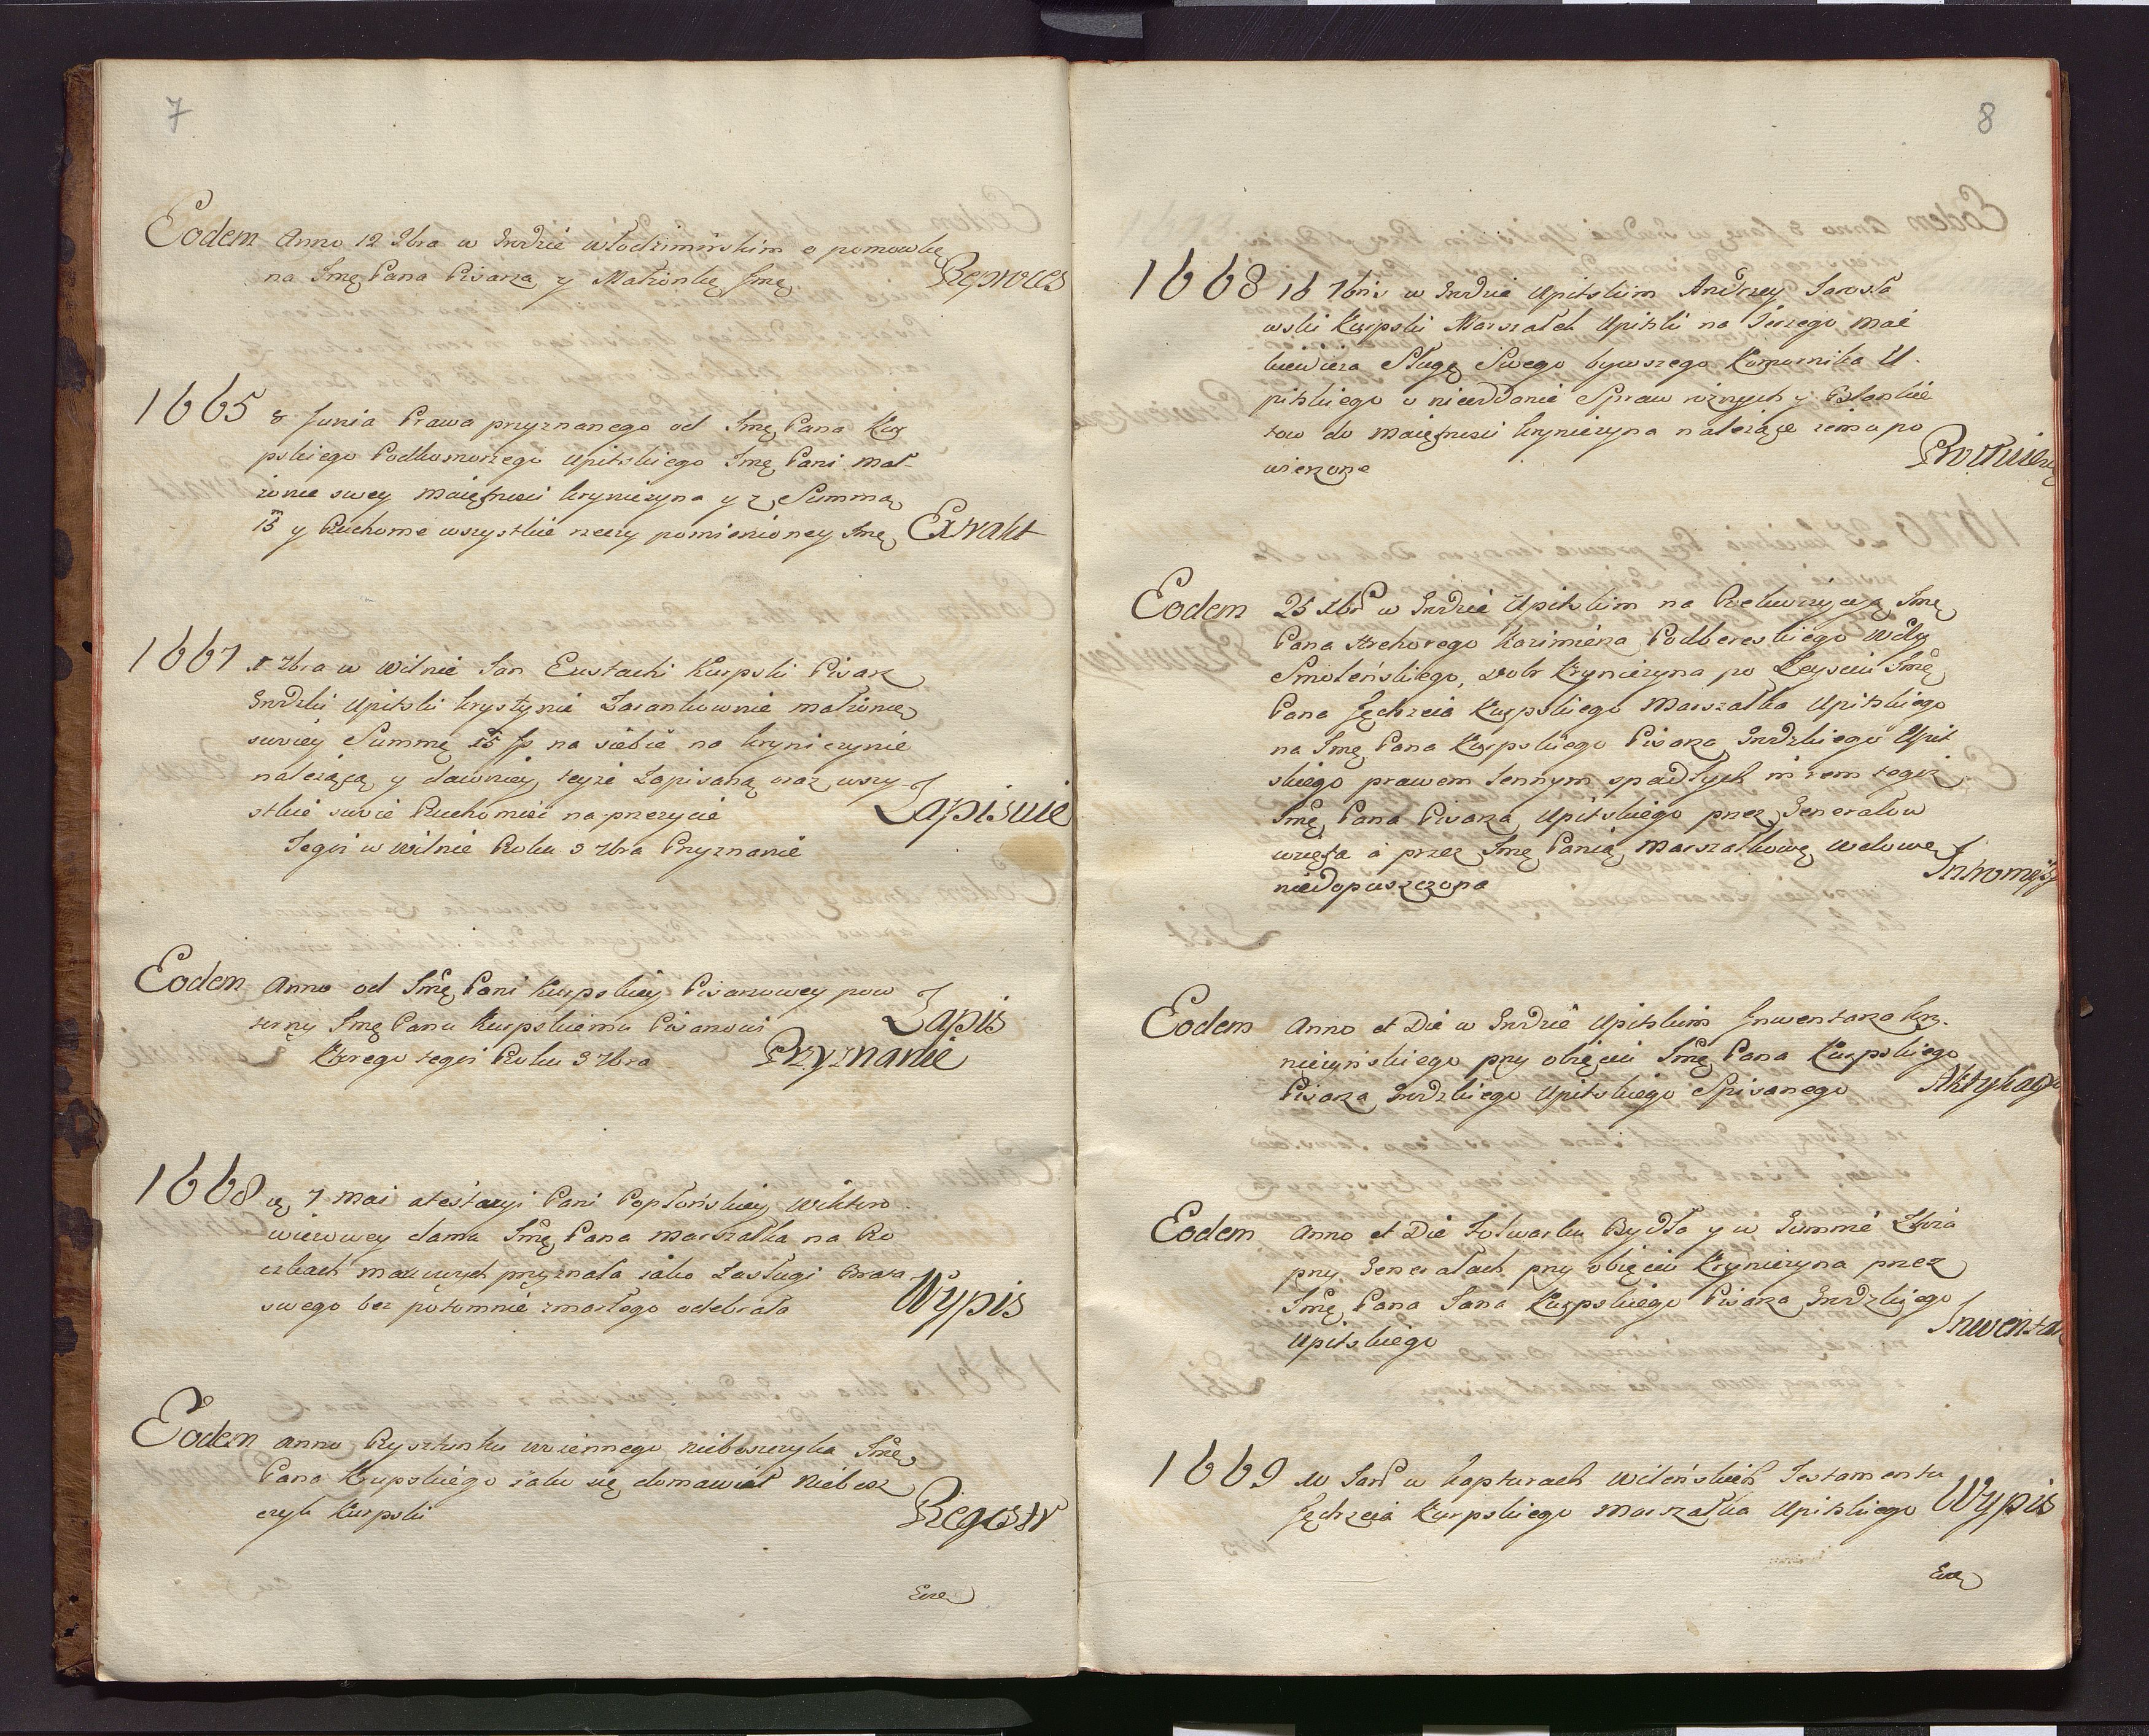 7
Eodem Anno 12 9bra w Grodzie włodzimirskim o pomowkę
na Jmę Pana Pisarza y Małżonkę Jmę Reproces
1665 8 Junia Prawa przyznanego od Jmę Pana Kur
pskiego Podkomorzego Upitskiego Jmę Pani mał-
żonce swey maiętności kryniczyna y z Summą
15 y Ruchome wszystkie rzeczy pomienioney Jmę Extrakt
1667 7bra w Wilnie Jan Eustachi Kurpski Pisarz
Grodzki Upitski krystynie Zarankownie małżonce
swoiey Summę 15 na siebie na kryniczynie
należącą y dawniey teyże Zapisaną oraz wszy-
stkie swoie Ruchomości na przezycie Zapisuie
Tegoż w wilnie Roku 9 7bra Pryznanie
Eodem Anno od Jmę Pani Kurpskiey Pisarzowey pow
torny Jmę Panu Kurpskiemu Pisarzowi Zapis
Ktorego tegoż Roku 9 7bra Przyznanie
1668 7 mai atestacyi Pani Popłońskiey Wiktoro
wiczowey dama Jmę Pana marszałka na Ro
czkach maiowych przyznała iako Zasługi Brata
swego bez potomnie zmarłego odebrała Wypis
Eodem anno Rysztunku woiennego nieboszczyka Jmę
Pana Krupskiego iako się domawiał niebosz
czyk Kurpski Regestr
8
1668 16 7bris w Grodzie Upitskim Andrzey Jarosła
wski Kurpski Marszałek Upitski na Jerzego mac
kiewicza Sługę Swego bywszego Komornika U-
pitskiego o nieoddanie Spraw roznych y Blankie
tow do maiętnosci kryniczyna należące iemu po
wierzone
Eodem 25 w Grodzie Upitskim na Jmę
Pana Hrehorego Kazimierza Podbereskiego
Smoleńskiego, Dobr Kryniczyna po Zeysciu Jmę
Pana Jędrzeia Kurpskiego Marszałka Upitskiego
na Jmę Pana Kurpskiego Pisarza Grodzkiego Upit
skiego prawem lennym spadłych in rem tegoż
Jmę Pana Pisarza Upitskiego przez Generałow
wzięta a przez Jmę Panią marszałkowę wdowę
niedopuszczona
Eodem Anno et Die w Grodzie Upitskim Inwentarza kry-
niczyńskiego przy obięciu Jmę Pana Kurpskiego
Pisarza Grodzkiego Upitskiego Spisanego
Eodem Anno et Die Folwarku Bydła y w Gumnie Zboża
przy Generałach przy obięciu Kryniczyna przez
Jmę Pana Jana Kurpskiego Pisarza Grodzkiego
Upitskiego Inwentar
1669 w kapturach Wileńskich Testamentu
Jędrzeia Kurpskiego marszałka Upitskiego Wypis